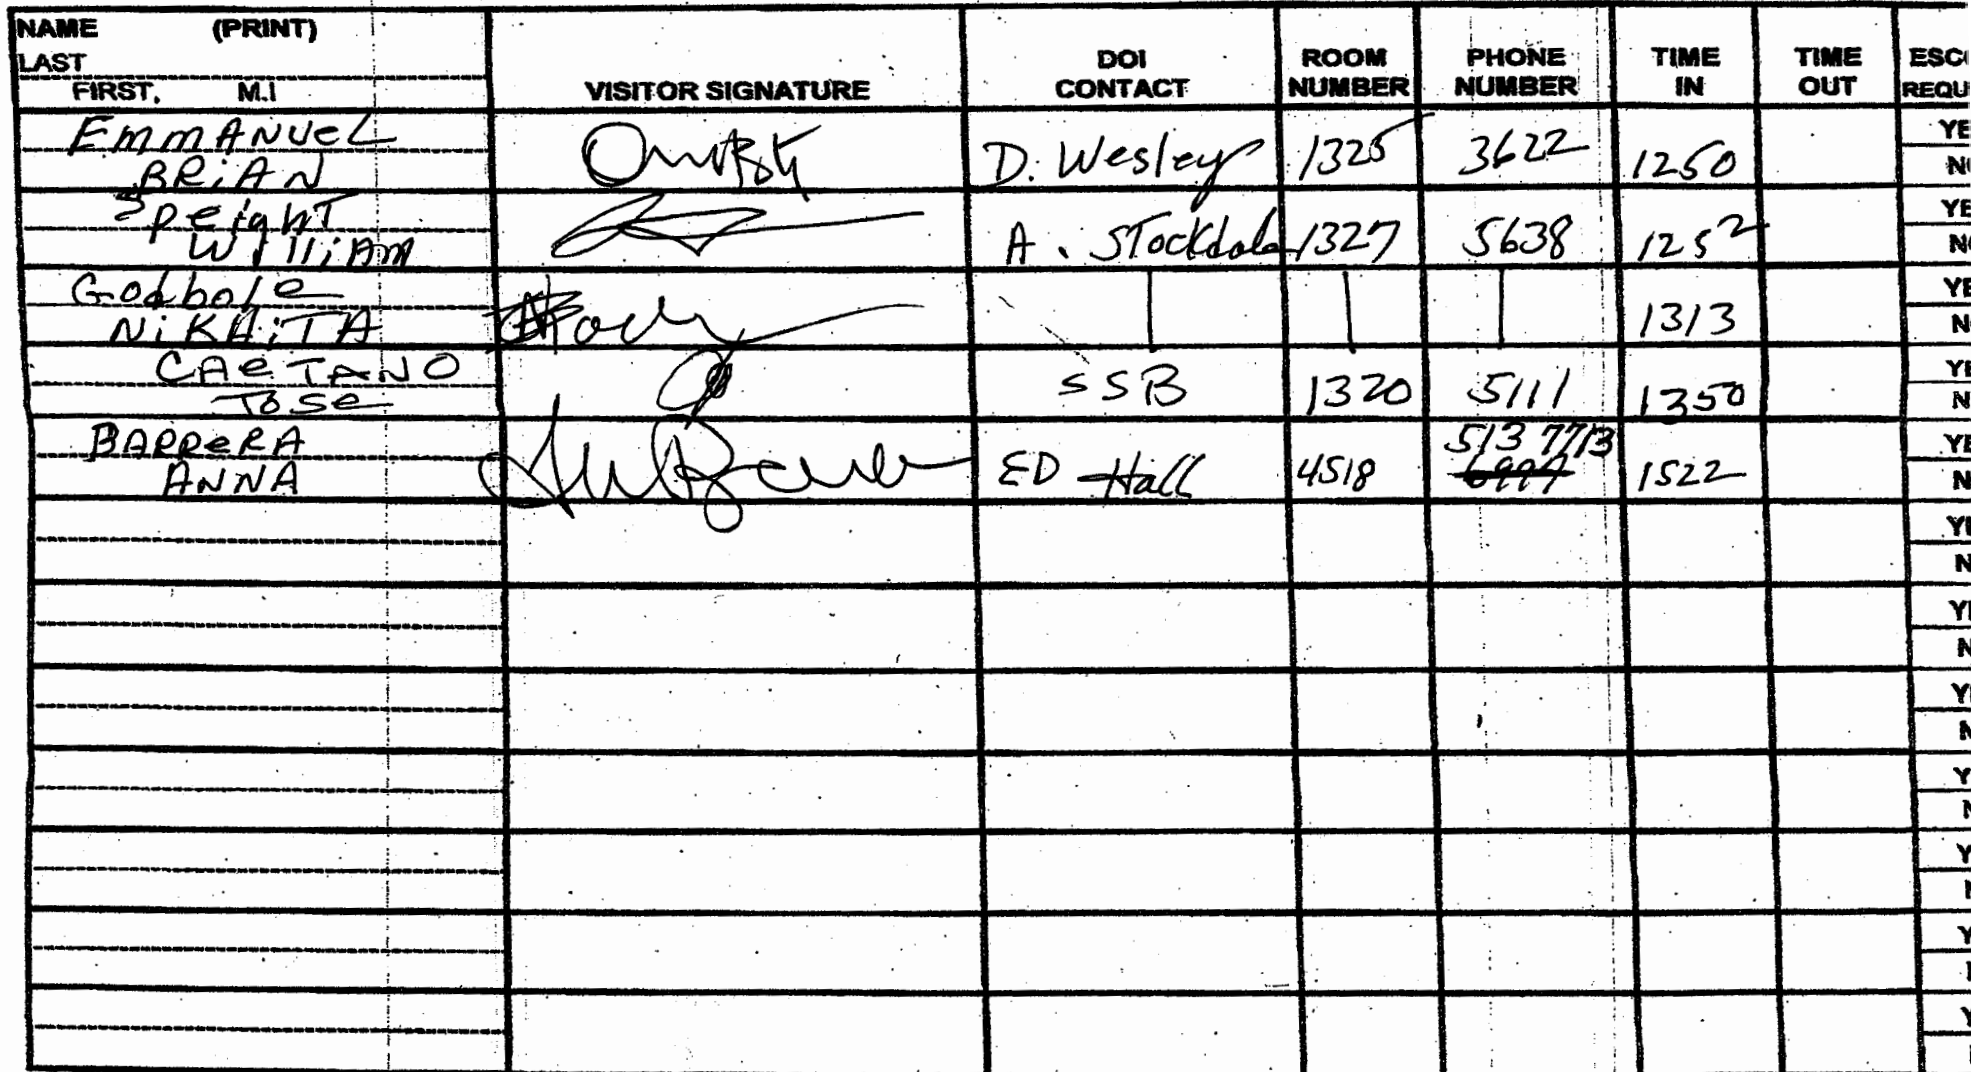 NAME (PRINT)
LAST
FIRST, M.I
VISITOR SIGNATURE
DOI CONTACT
ROOM NUMBER
PHONE NUMBER
TIME IN
TIME OUT
ESC
REQU
EMMANUEL
BRIAN
D. Wesley 1325 3622 1250
YE
N
Speight
William
A. Stockdale 1327 5638 1252
YE
N
Godbole
NiKHiTA
1313
YE
N
CAeTANO
Jose
SSB 1320 5111 1350
YE
N
BARReRA
ANNA
ED Hall 4518 513 7713 1522
YE
N
YE
N
YE
N
YE
N
Y
N
Y
Y
Y